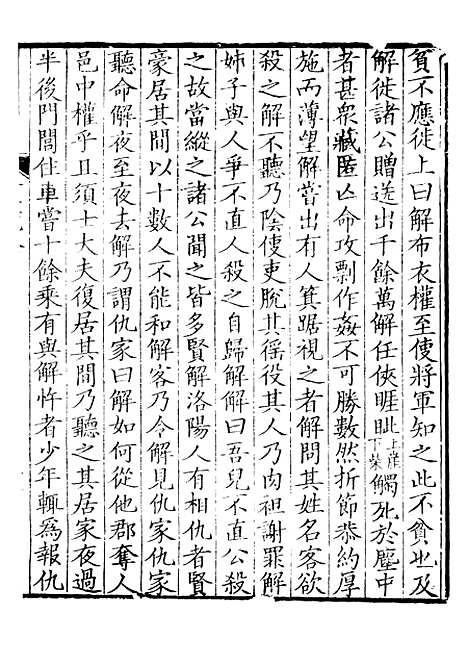 貧不應徙上曰解布衣權至使將軍知之此不貧也及
解徙諸公贈送出千餘萬解任俠睚眦上崖下柴觸死於塵中
者甚衆藏匿亡命攻剽作姦不可勝數然折節恭約厚
施而薄望解嘗出有人箕踞視之者解問其姓名客欲
殺之解不聽乃陰使吏脫其徭役其人乃肉袒謝罪解
姊子與人爭不直人殺之自歸解解曰吾兒不直公殺
之故當縱之諸公聞之皆多賢解洛陽人有相仇者賢
豪居其間以十數人不能和解客乃令解見仇家仇家
聽命解夜至夜去解乃謂仇家曰解如何從他郡奪人
邑中權乎且須士大夫復居其間乃聽之其居家夜過
半後門閭住車嘗十餘乘有與解忤者少年輒爲報仇